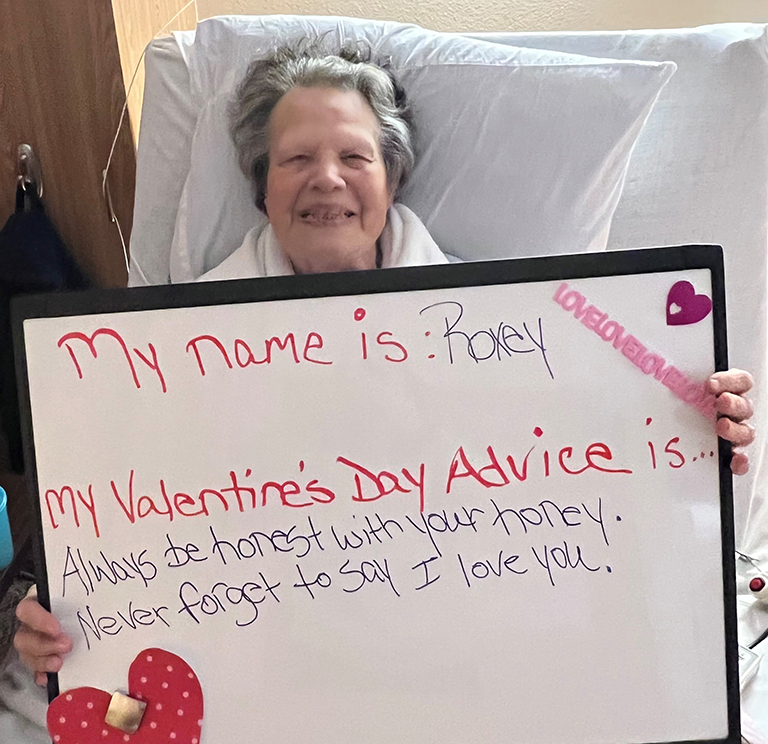 My name is: Roxey
LOVELOVELOVELOVE
My Valentine's Day Advice is...
Always be honest with your honey.
Never forget to say I love you.